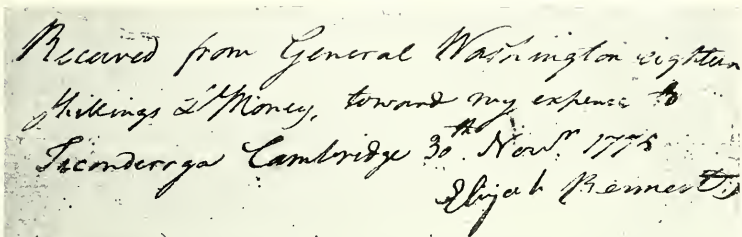 Received from General Washington eighteen
shillings L Money, toward my expence to
Ticonderoga Cambridge 30th Novr. 1775
Elijah Bennet